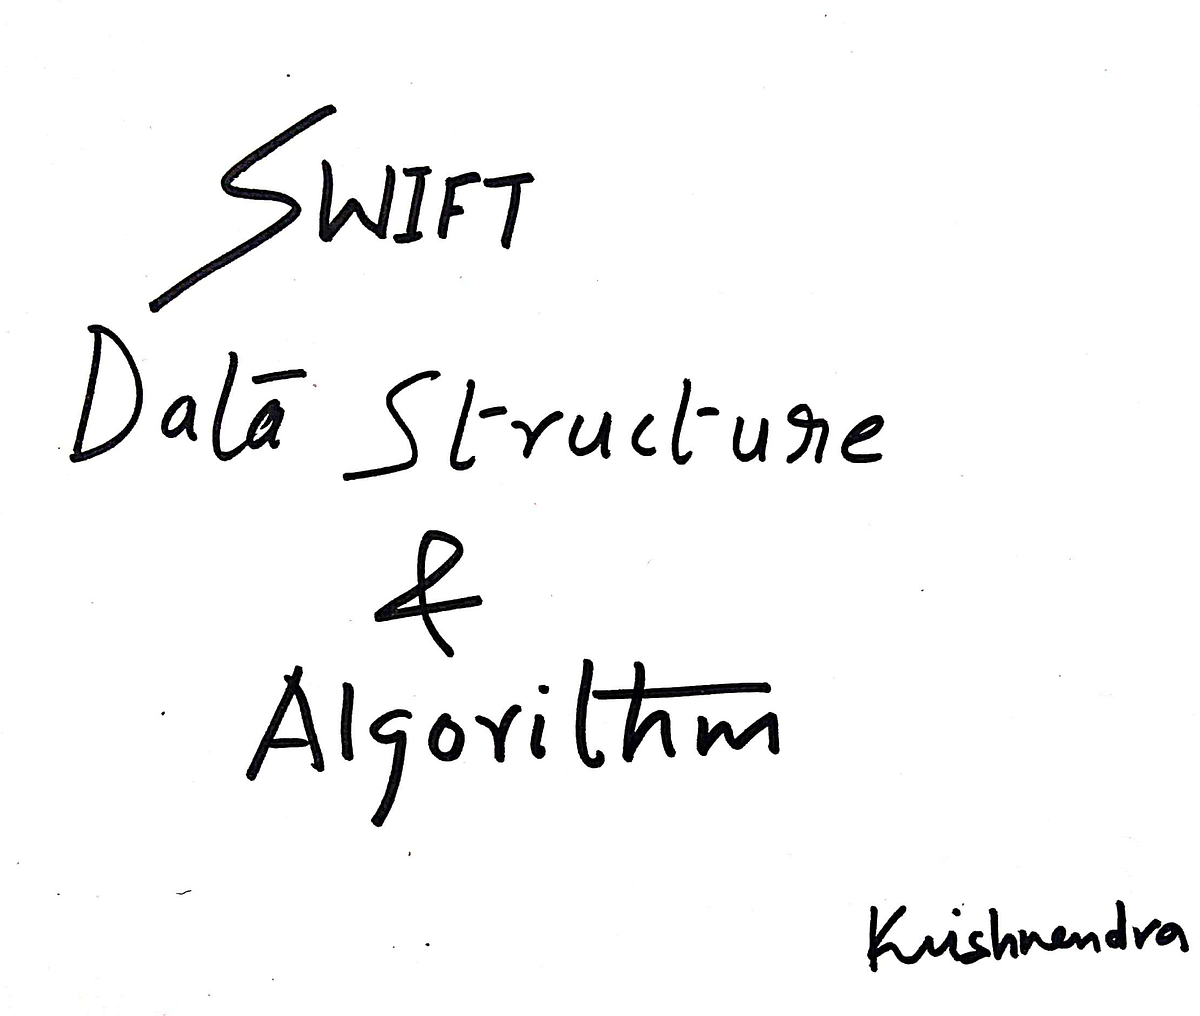 SWIFT
Data Structure
&
Algorithm
Krishnendra